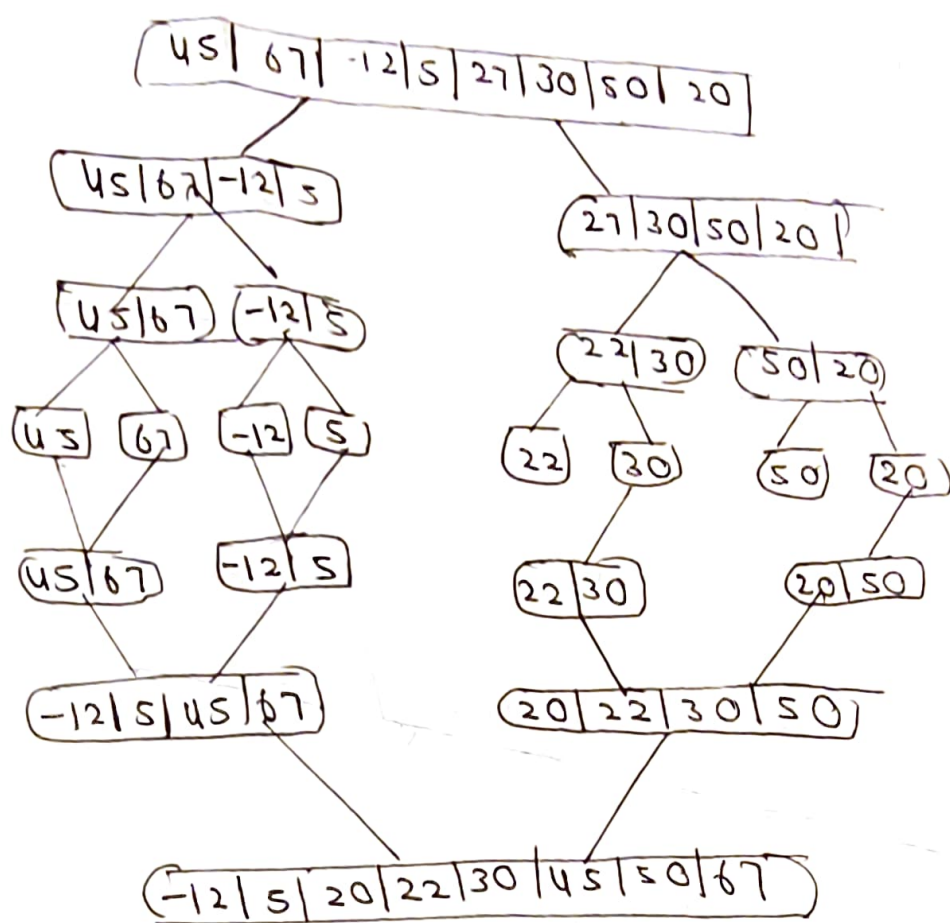 45| 67| -12|5|27|30|50| 20
45|67|-12|5
27|30|50|20|
45|67 -12|5
22|30 50|20
45 67 -12 5 22 30 50 20
45|67 -12|5 22|30 20|50
-12|5|45|67 20|22|30|50
-12|5|20|22|30|45|50|67